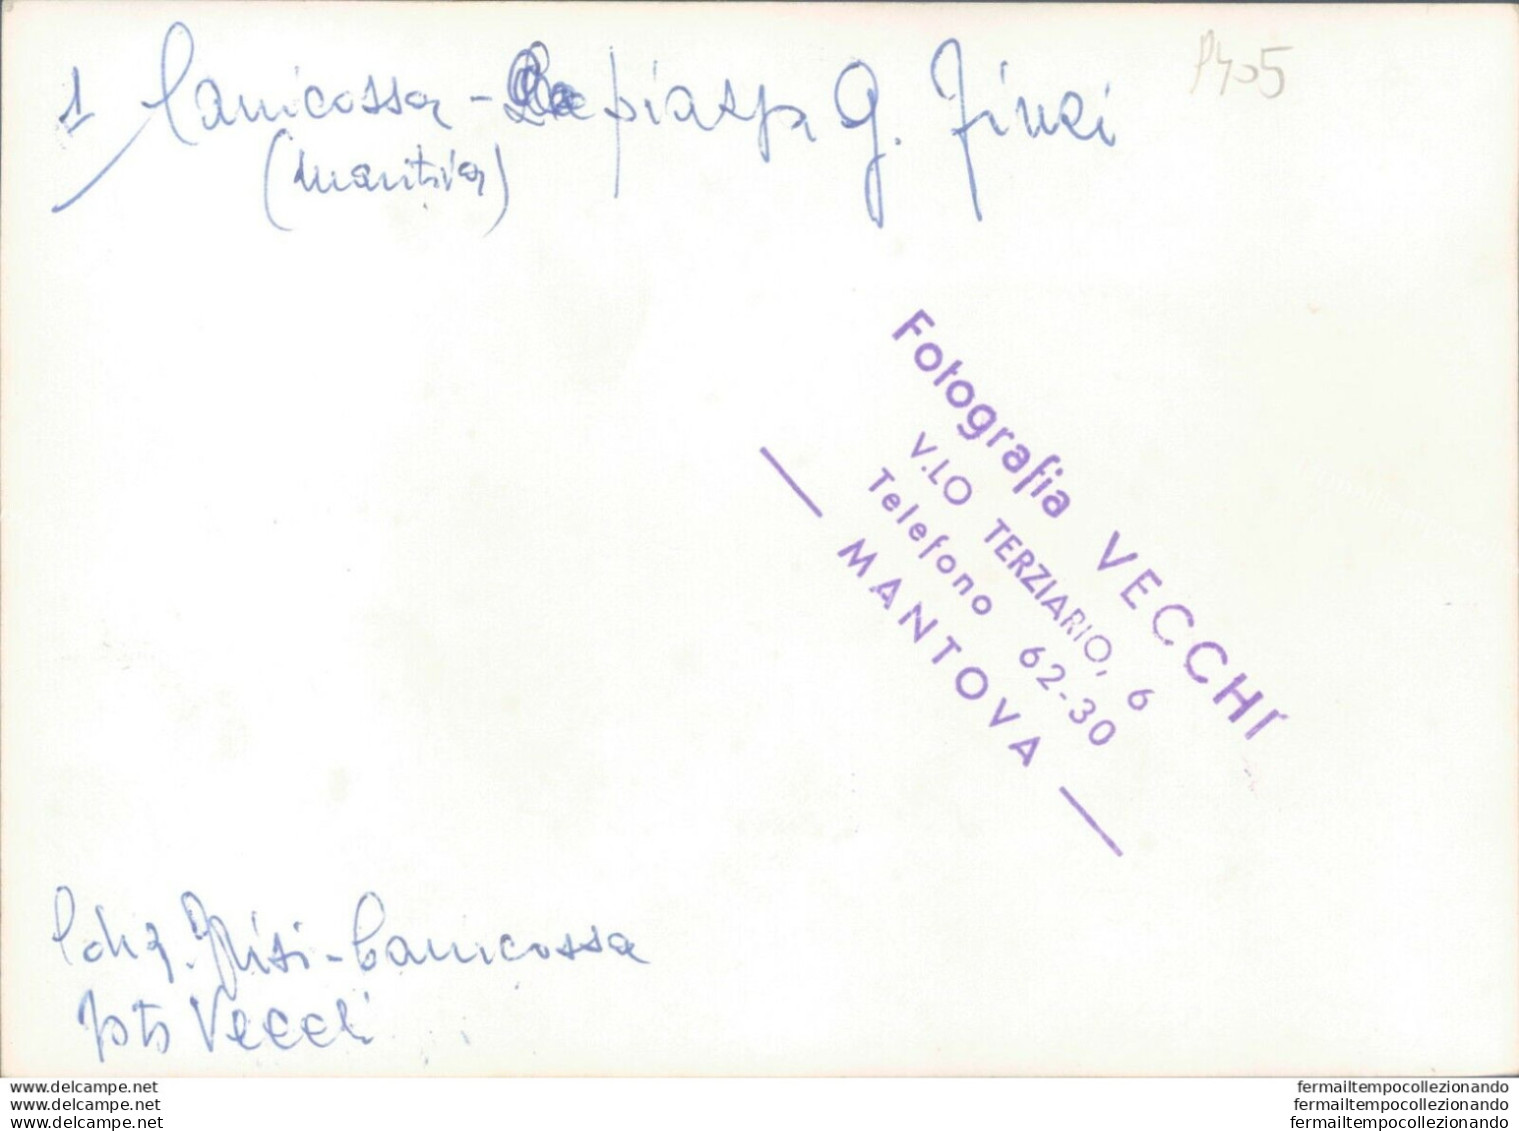 1 Canicossa - La piazza G. Finzi
(Mantova)
P405
Fotografia VECCHI
V.LO TERZIARIO, 6
Telefono 62-30
— MANTOVA —
Canicossa
foto Vecchi
www.delcampe.net
www.delcampe.net
www.delcampe.net
fermailtempocollezionando
fermailtempocollezionando
fermailtempocollezionando